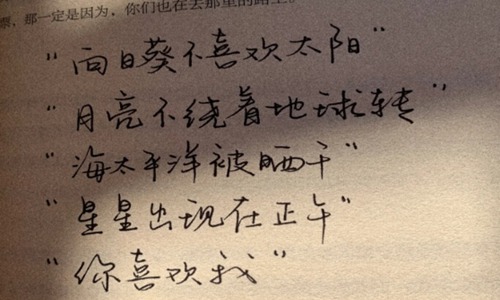 票，那一定是因为，你们也在去那里的路上。
"向日葵不喜欢太阳"
"月亮不绕着地球转"
"海太平洋被晒干"
"星星出现在正午"
"你喜欢我"